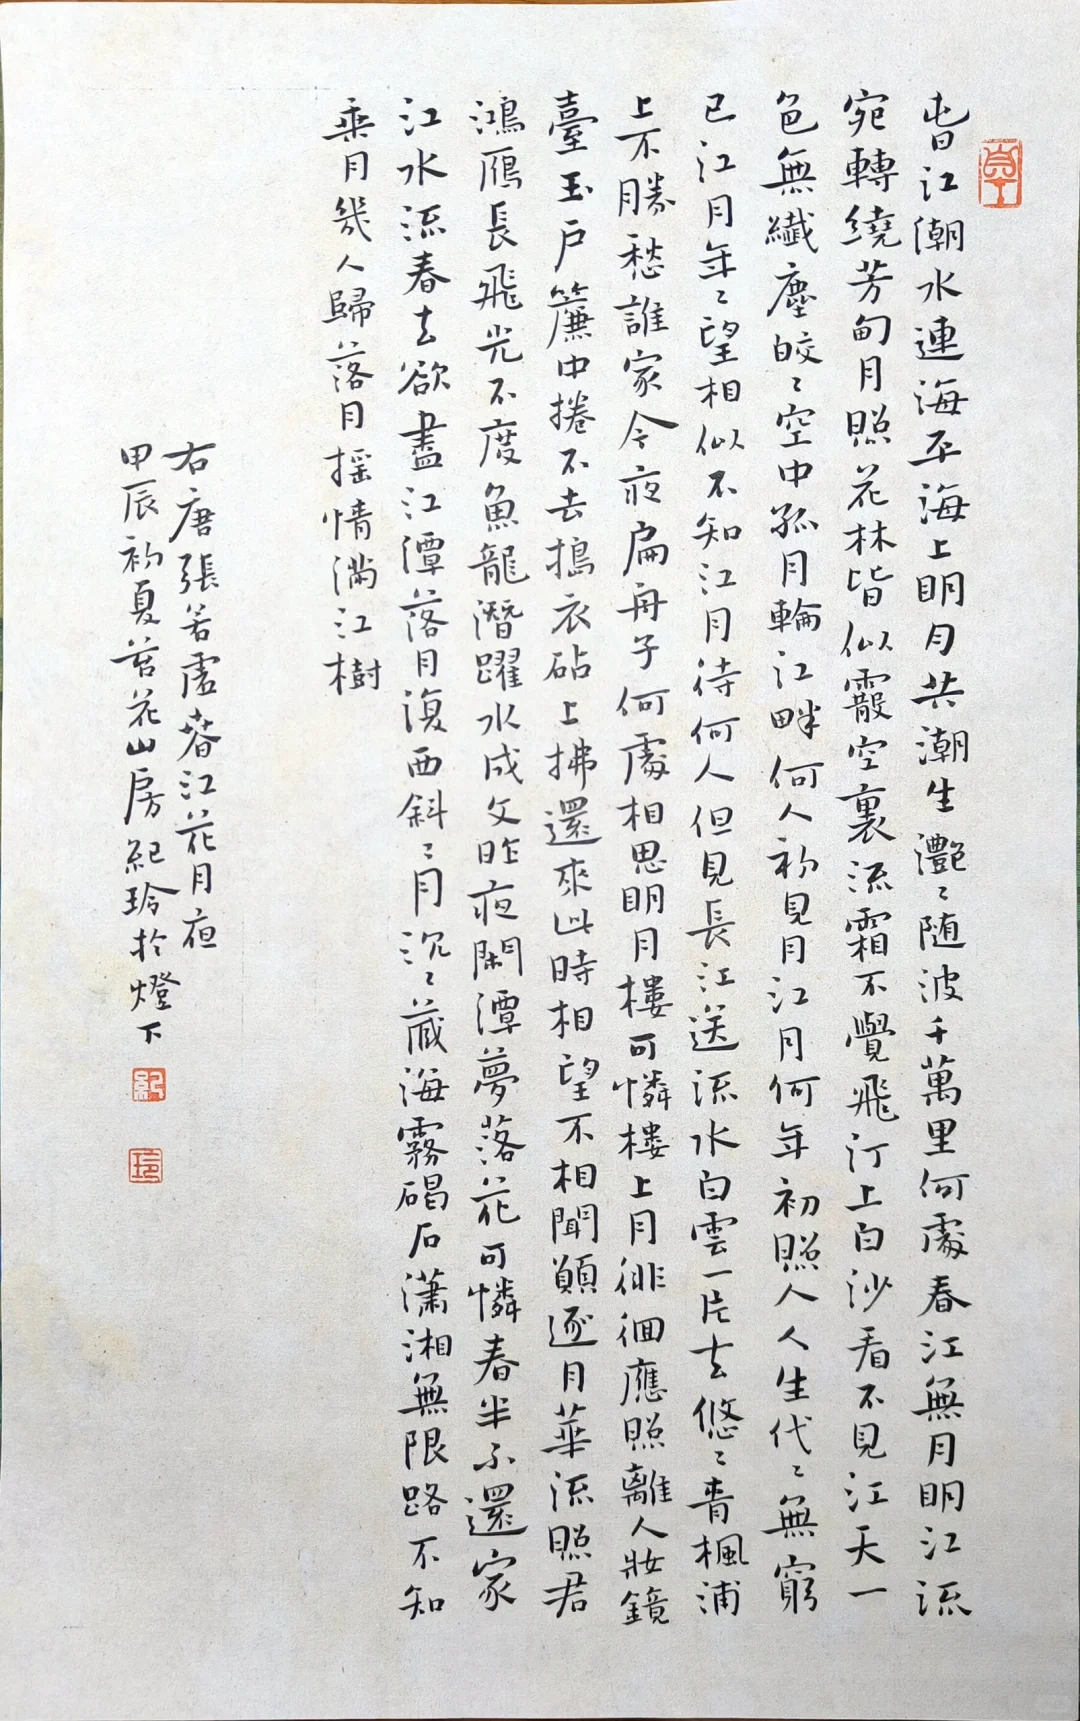 旾江潮水連海平海上明月共潮生灩〻随波千萬里何處春江無月明江流
宛轉繞芳甸月照花林皆似霰空裏流霜不覺飛汀上白沙看不見江天一
色無纖塵皎〻空中孤月輪江畔何人初見月江月何年初照人人生代〻無窮
已江月年〻望相似不知江月待何人但見長江送流水白雲一片去悠〻青楓浦
上不勝愁誰家今夜扁舟子何處相思明月樓可憐樓上月徘徊應照離人妝鏡
臺玉戶簾中捲不去搗衣砧上拂還來此時相望不相聞願逐月華流照君
鴻雁長飛光不度魚龍潛躍水成文昨夜閑潭夢落花可憐春半不還家
江水流春去欲盡江潭落月復西斜〻月沉〻藏海霧碣石瀟湘無限路不知
乘月幾人歸落月搖情滿江樹
右唐張若虛春江花月夜
甲辰初夏苕花山房紀玲於燈下
紀
玲